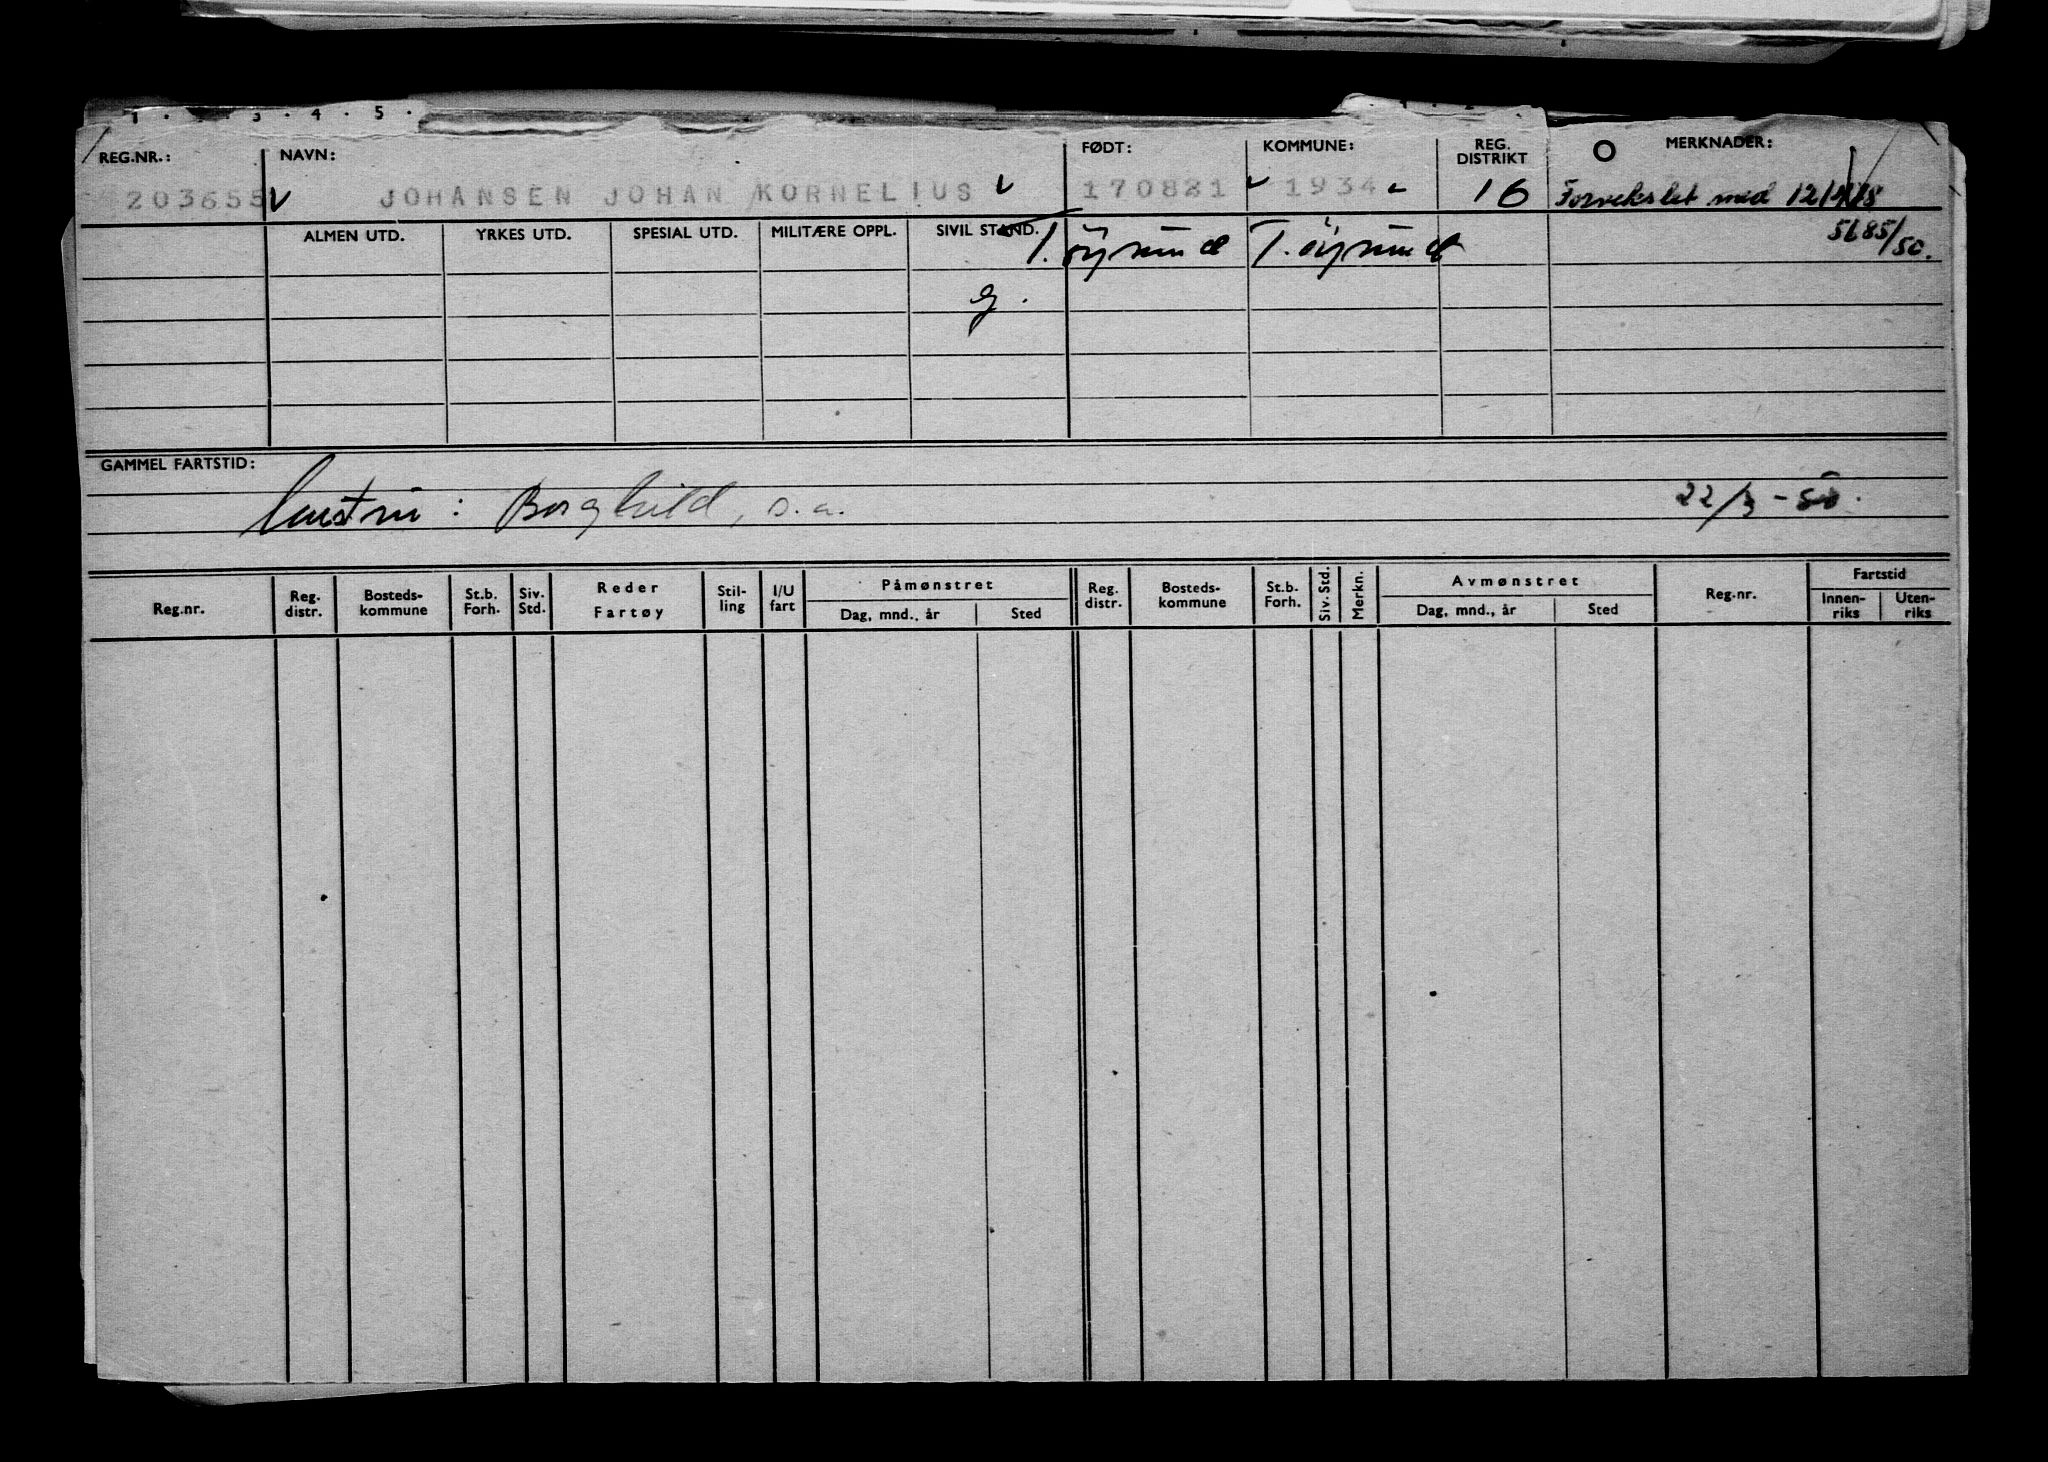 3 · 4 · 5 ·
REG.NR.: NAVN: FØDT: KOMMUNE: REG. DISTRIKT MERKNADER:
203655 JOHANSEN JOHAN KORNELIUS 170821 1934 16 Forvekslet med
5685/50.
ALMEN UTD. YRKES UTD. SPESIAL UTD. MILITÆRE OPPL. SIVIL STAND. T. öysund T. öysund
g.
GAMMEL FARTSTID:
hustru: Borghild, s.a. 22/3-50.
Reg.nr. Reg. distr. Bosteds- kommune St.b. Forh. Siv. Std. Reder Fartøy Stil- ling I/U fart Påmønstret Dag, mnd., år Sted Reg. distr. Bosteds- kommune St.b. Forh. Siv. Std. Merkn. Avmønstret Dag, mnd., år Sted Reg.nr. Fartstid Innen- riks Uten- riks